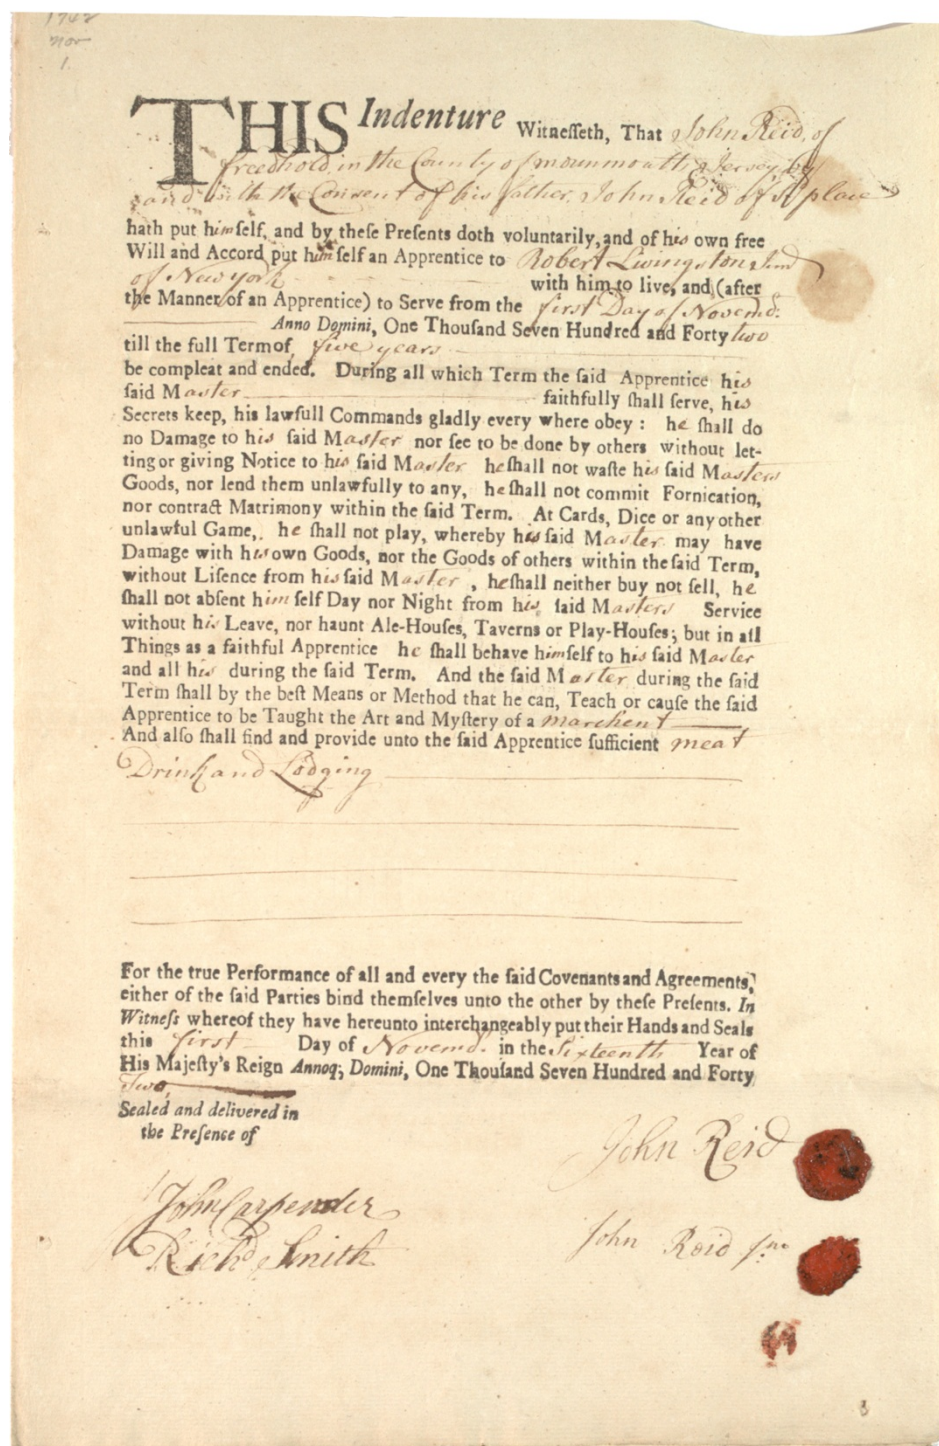 1742
Nov
1.
THIS Indenture Witnesseth, That John Reid, of
freedhold in the County of monmouth Jersey, by
and with the Consent of his father John Reid of sd place
hath put himself, and by these Presents doth voluntarily, and of his own free
Will and Accord put himself an Apprentice to Robert Livingston Jund
of New york with him to live, and (after
the Manner of an Apprentice) to Serve from the first Day of Novemd:
Anno Domini, One Thousand Seven Hundred and Forty two
till the full Term of five years
be compleat and ended. During all which Term the said Apprentice his
said Master faithfully shall serve, his
Secrets keep, his lawfull Commands gladly every where obey: he shall do
no Damage to his said Master nor see to be done by others without let-
ting or giving Notice to his said Master he shall not waste his said Masters
Goods, nor lend them unlawfully to any, he shall not commit Fornication,
nor contract Matrimony within the said Term. At Cards, Dice or any other
unlawful Game, he shall not play, whereby his said Master may have
Damage with his own Goods, nor the Goods of others within the said Term,
without Lisence from his said Master, he shall neither buy not sell, he
shall not absent himself Day nor Night from his said Masters Service
without his Leave, nor haunt Ale-Houses, Taverns or Play-Houses; but in all
Things as a faithful Apprentice he shall behave himself to his said Master
and all his during the said Term. And the said Master during the said
Term shall by the best Means or Method that he can, Teach or cause the said
Apprentice to be Taught the Art and Mystery of a marchent
And also shall find and provide unto the said Apprentice sufficient meat
Drink and Lodging
For the true Performance of all and every the said Covenants and Agreements,
either of the said Parties bind themselves unto the other by these Presents. In
Witness whereof they have hereunto interchangeably put their Hands and Seals
this first Day of Novemd: in the Sixteenth Year of
His Majesty's Reign Annoq; Domini, One Thousand Seven Hundred and Forty
Two
Sealed and delivered in
the Presence of
John Reid
John Carpender
John Reid Jnr
Richd Smith